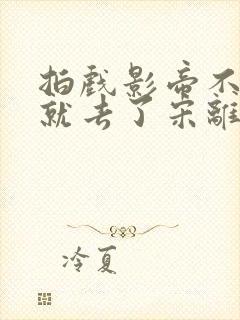 拍戏影帝不
就去了宋離
冷夏